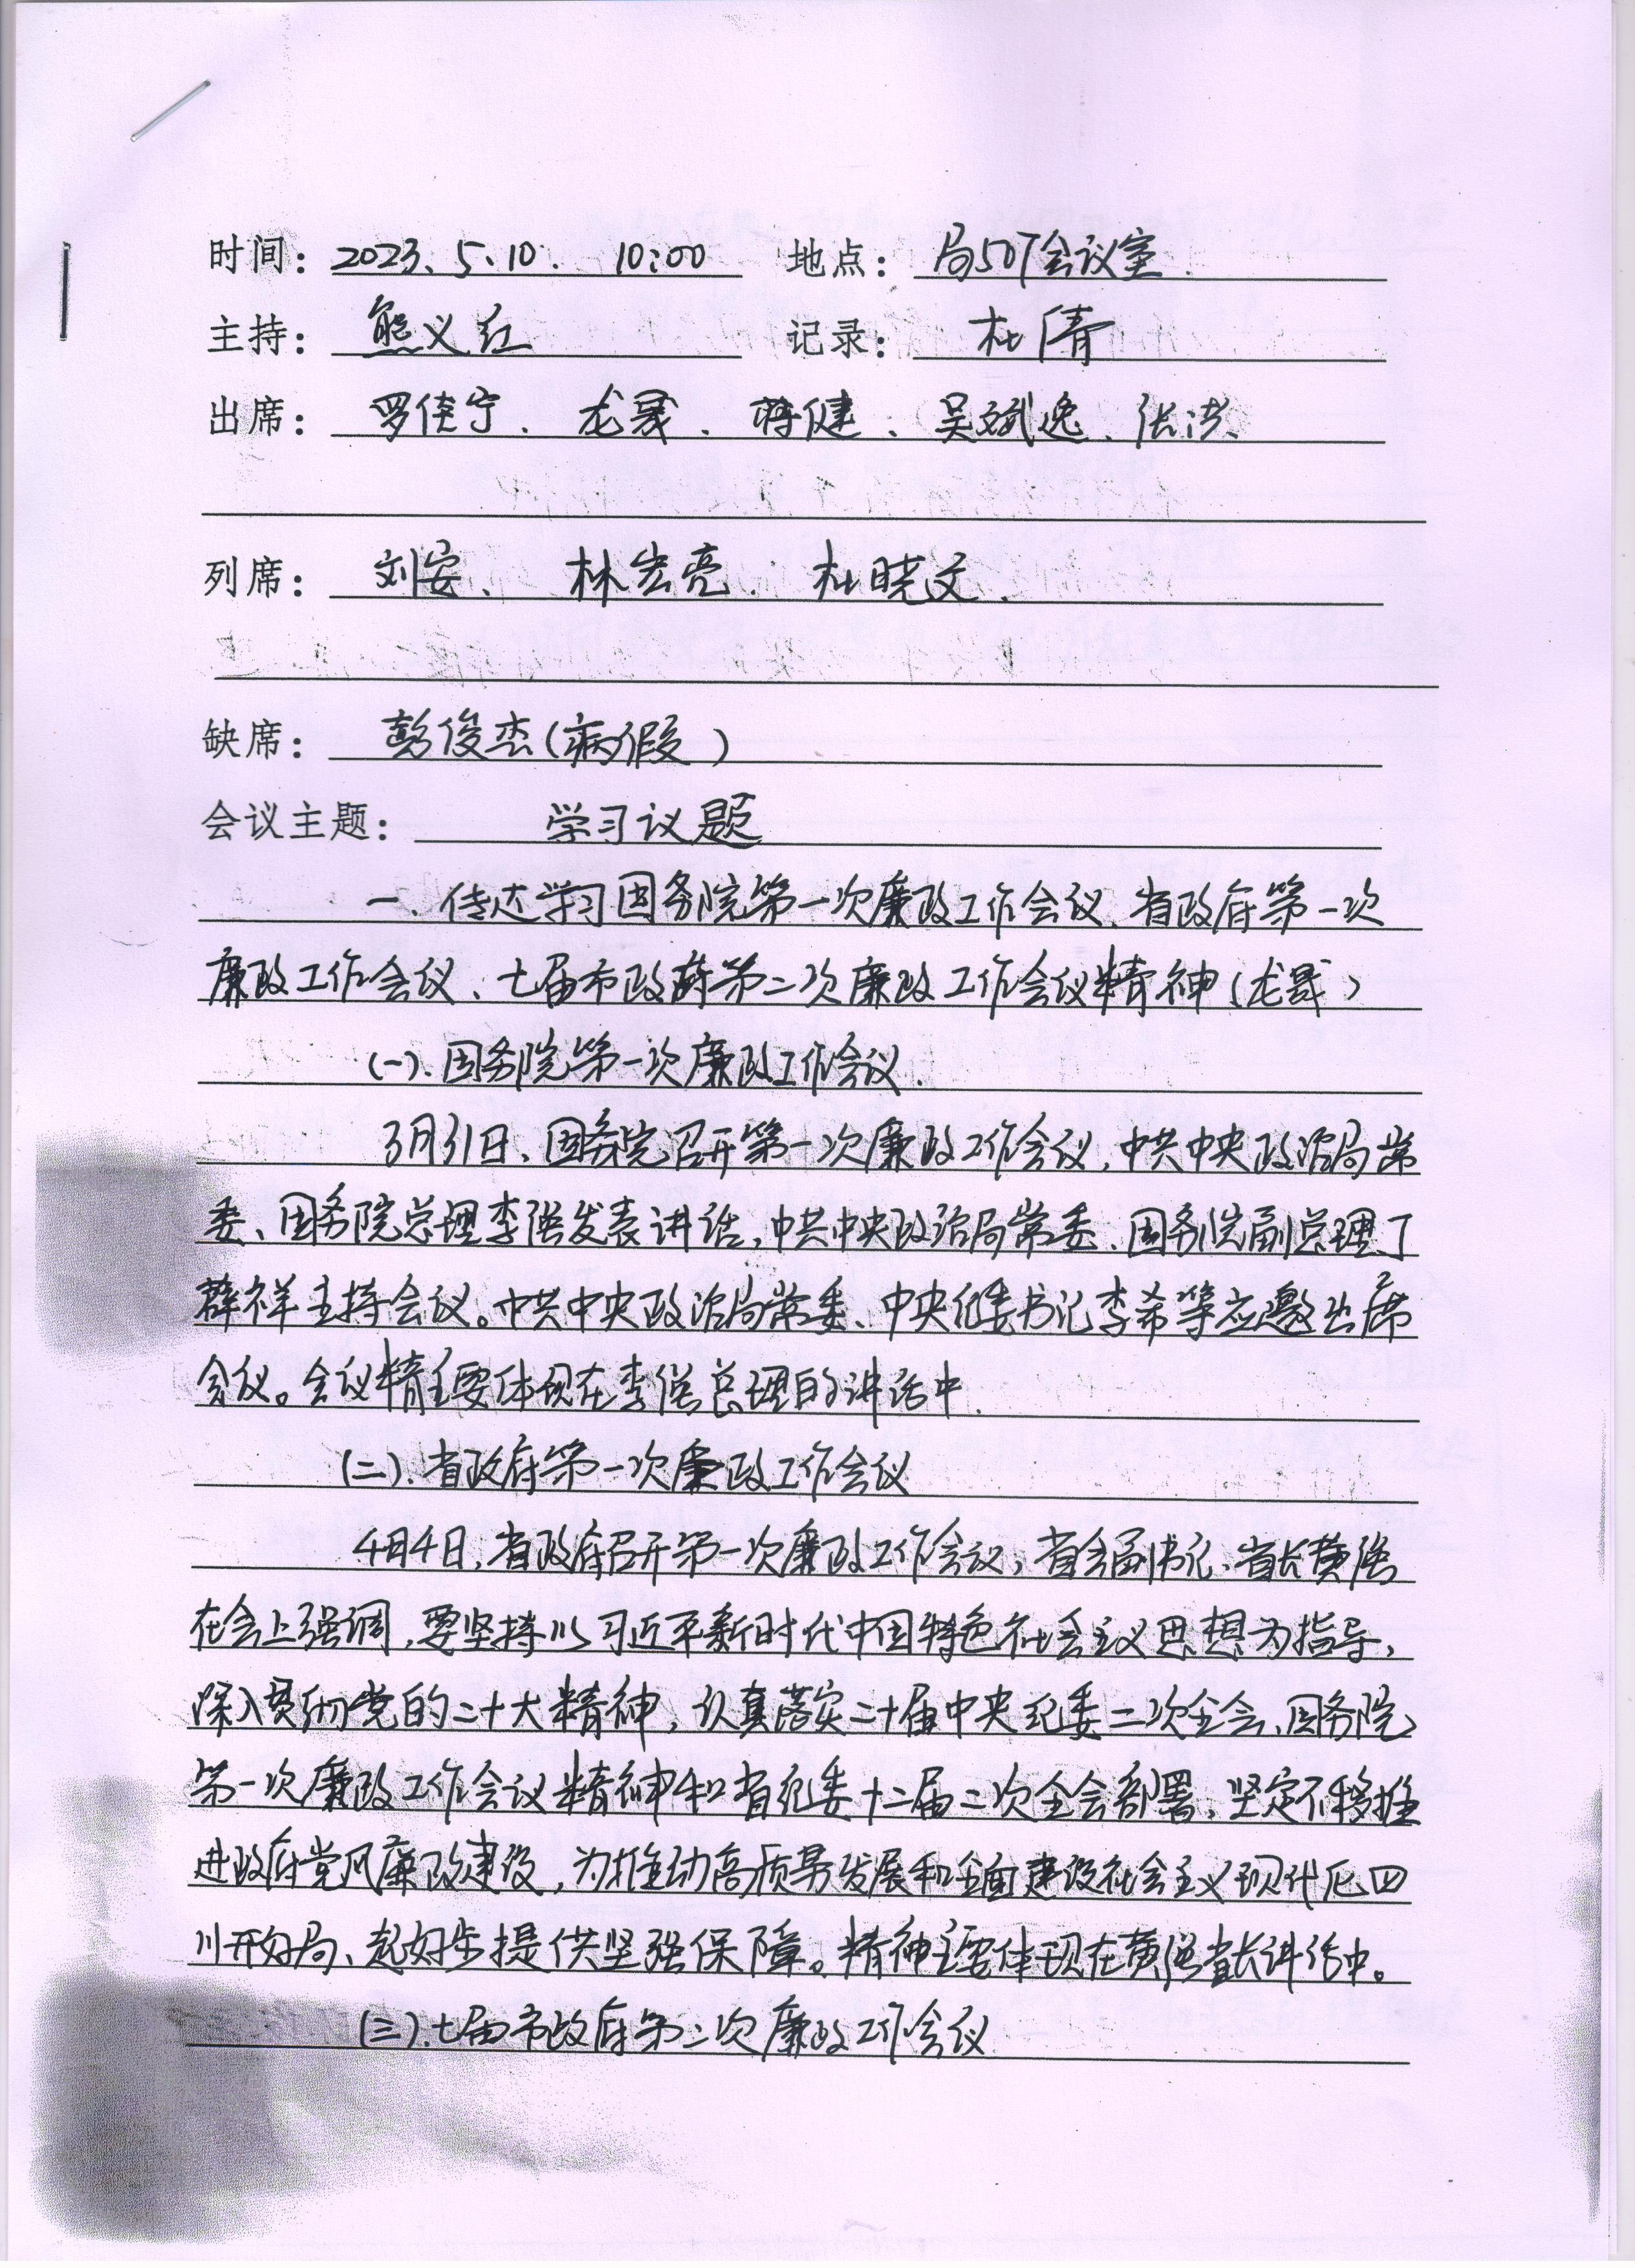 时间：2023.5.10. 10:00 地点：局507会议室.
主持：熊义红 记录：杜倩
出席：罗佳宁、龙晟、蒋健、吴斌逸、张洪、
列席：刘安、林宏亮、杜晓文、
缺席：彭俊杰(病假)
会议主题：学习议题
一、传达学习国务院第一次廉政工作会议、省政府第一次
廉政工作会议、七届市政府第二次廉政工作会议精神(龙晟)
(一).国务院第一次廉政工作会议.
3月31日,国务院召开第一次廉政工作会议,中共中央政治局常
委、国务院总理李强发表讲话,中共中央政治局常委、国务院副总理丁
薛祥主持会议。中共中央政治局常委、中央纪委书记李希等应邀出席
会议。会议精主要体现在李强总理的讲话中.
(二).省政府第一次廉政工作会议
4月4日,省政府召开第一次廉政工作会议,省会副书记、省长黄强
在会上强调,要坚持以习近平新时代中国特色社会主义思想为指导,
深入贯彻党的二十大精神,认真落实二十届中央纪委二次全会、国务院
第一次廉政工作会议精神和省纪委十二届二次全会部署,坚定不移推
进政府党风廉政建设,为推动高质量发展和全面建设社会主义现代化四
川开好局、起好步提供坚强保障。精神主要体现在黄强省长讲话中。
(三).七届市政府第二次廉政工作会议